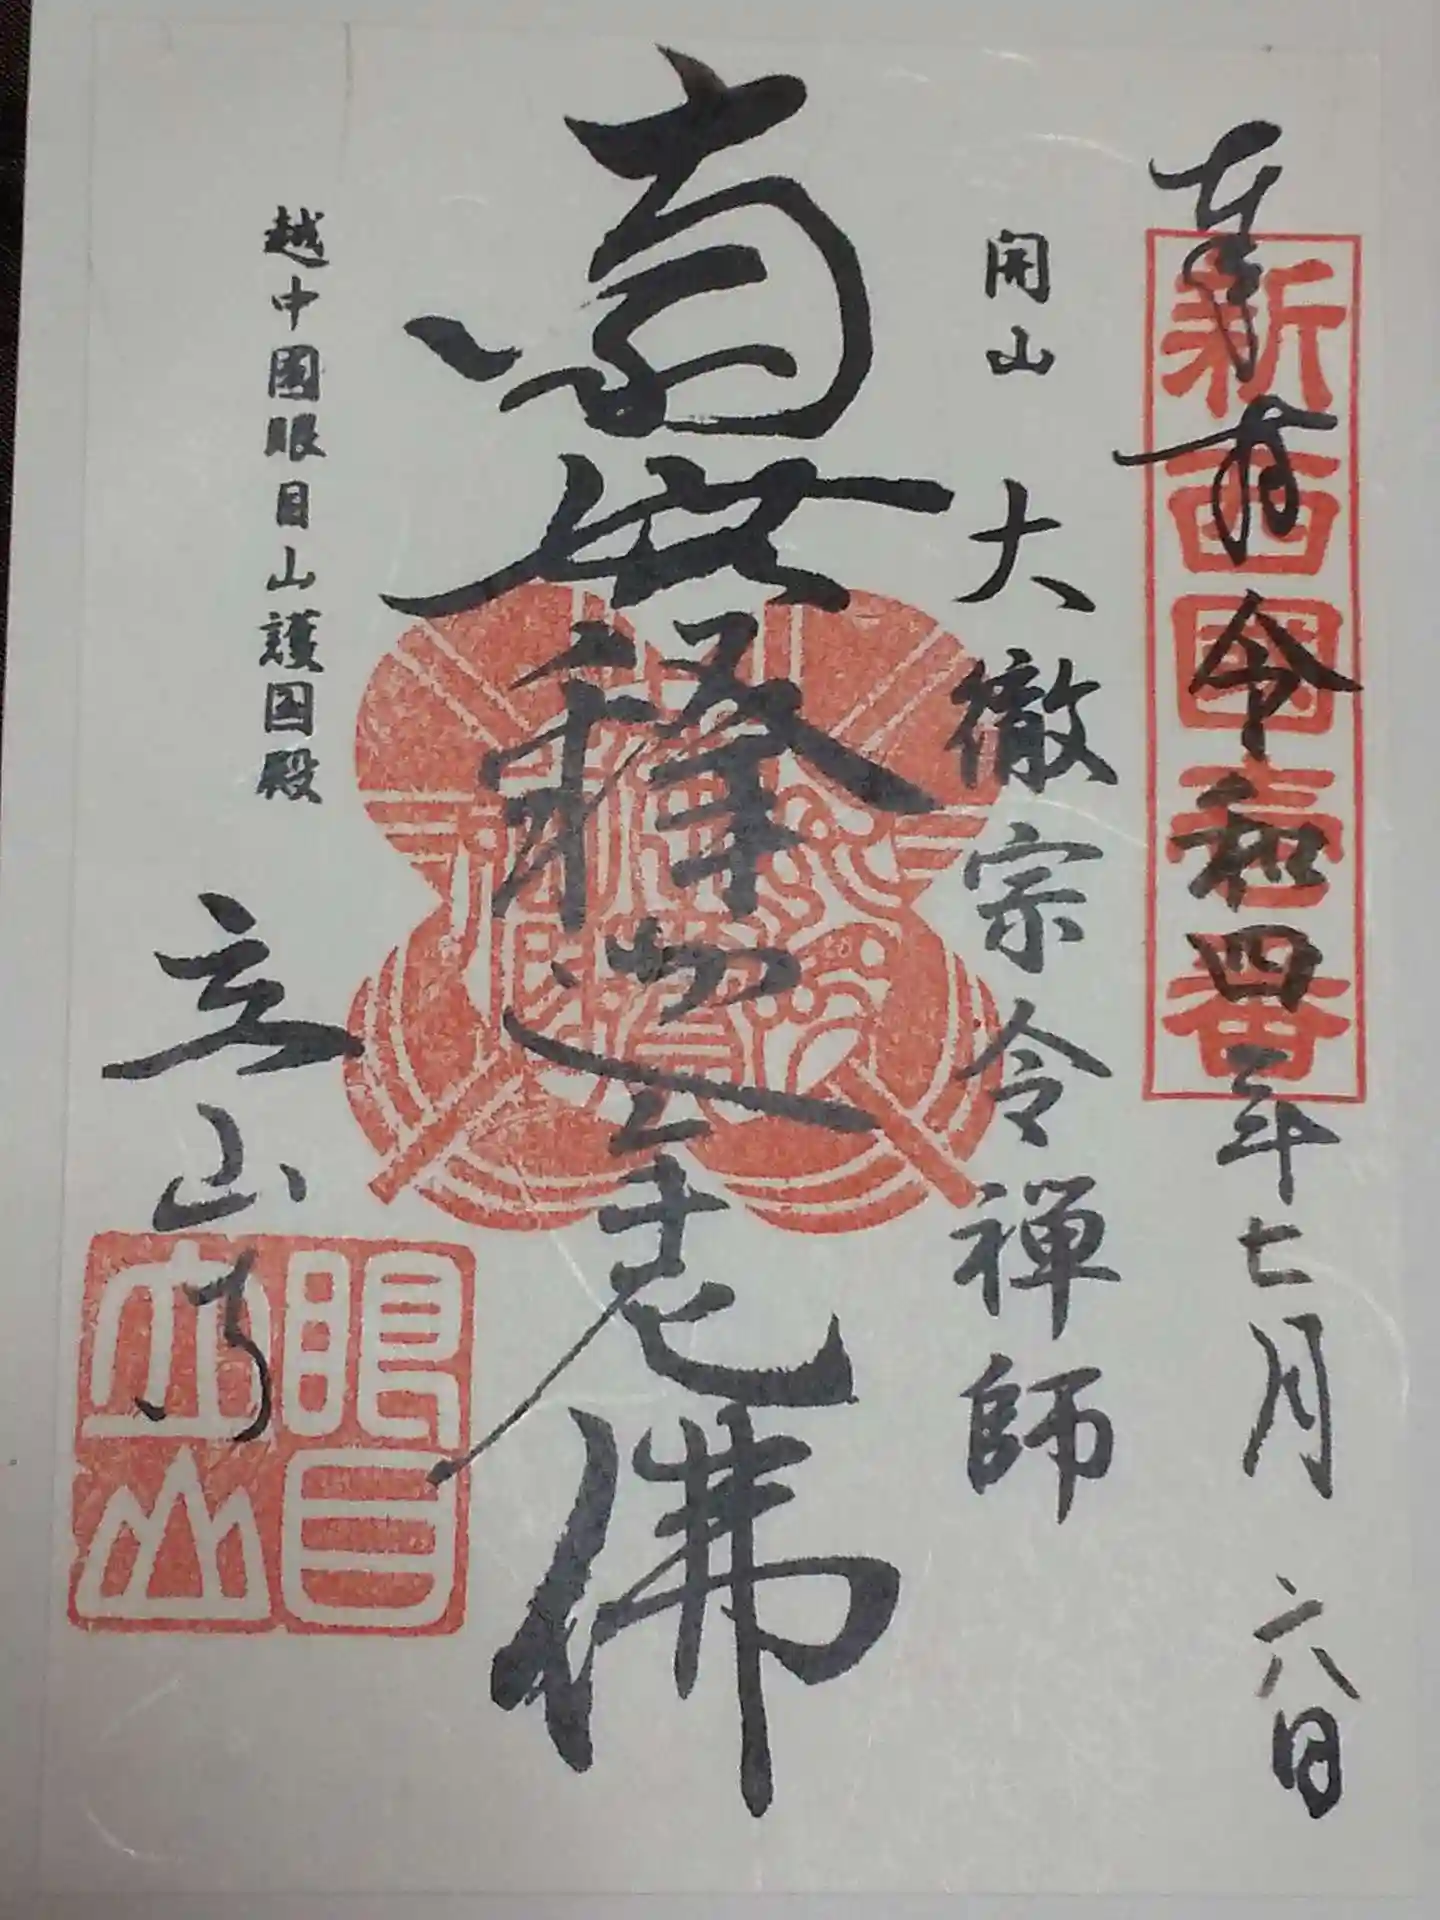 奉拝 令和四年七月六日
新西國壱番
開山 大徹宗令禅師
南無釋迦牟尼佛
越中國眼目山護国殿
立山寺
眼目
立山